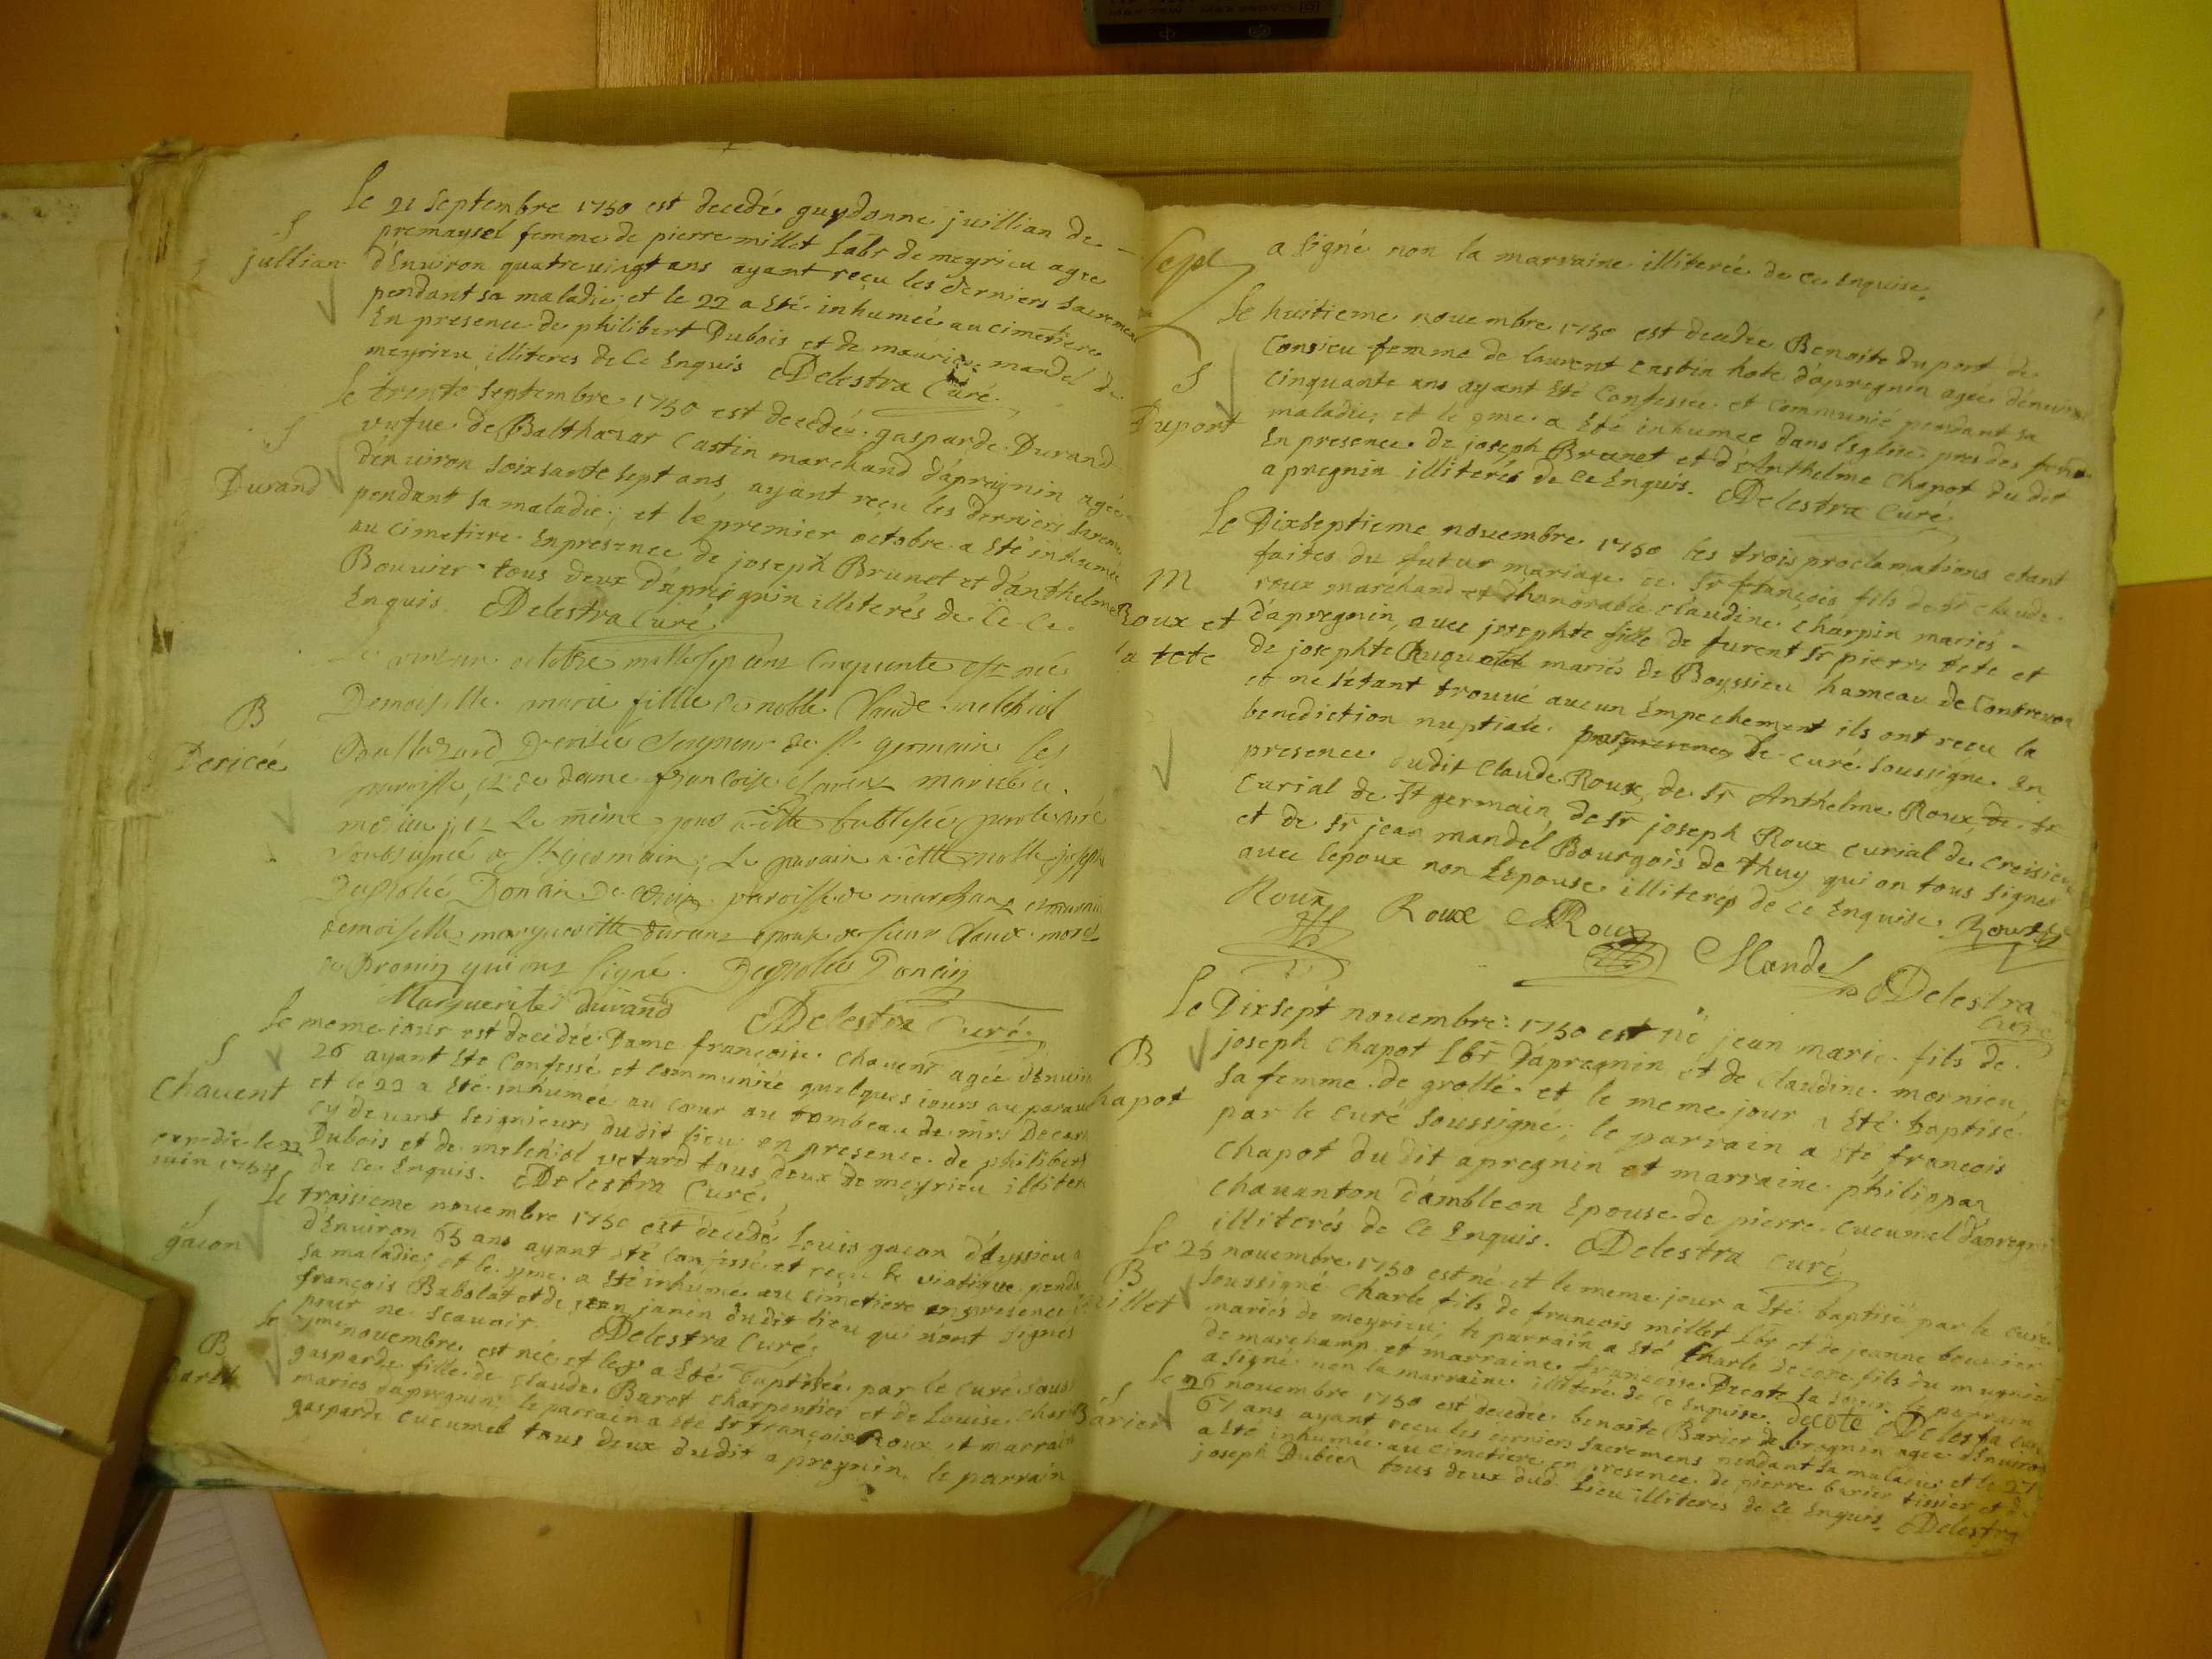 Le 21 Septembre 1750 est decedée guydonne juillian de
S
jullian
premaysel femme de pierre millet Labr de meyrieu agee
d'Environ quatre vingt ans ayant reçu les derniers Sacremen
pendant sa maladie; et le 22 a Eté inhumée au cimetiere
En presence de philibert Dubois et de maurice mandel de
meyrieu illiteres de Ce Enquis Delestra Curé
Le trente Septembre 1750 est decedée gasparde Durand
S
Durand
vufue de Balthazar Castin marchand d'apregnin agée
d'environ soixsante sept ans, ayant reçu les derniers Sacreme
pendant sa maladie; et le premier octobre a Eté inhumée
au cimetiere En presence de joseph Brunet et d'anthelme
Bouvier tous deux d'apregnin illiterés de Ce
Enquis Delestra Curé
octobre mille sept cens Cinquante est née
B
Dericée
Demoiselle marie fille de noble Claude melchiol
Seigneur de St germain les
paroisse, et de dame françoise mariés
le même jour a été battisée par le curé
Soubsigné a St germain; le parain a étté noble joseph
Donçin paroisse de marchanz
demoiselle margueritte durant epouse de sieur Claude
qui ont signé. Donçin
Marguerite durand Delestra Curé
Le meme jour est decédée Dame françoise Chavent agée d'Envir
S
Chauent
26 ayant Eté Confessé et Communiée quelques iours auparau
et le 22 a Eté inhumée au Cœur au tombeau de mrs
cy devant Seigneurs dudit lieu en presence de philibert
expedié le 22
juin 1754
Dubois et de melchiol vetard tous deux de meyrieu illiter
de Ce Enquis. Delestra Curé
Le troisieme novembre 1750 est decédé Louis gacon d'éyssieu
S
gacon
d'Environ 65 ans ayant été confessé et reçu le viatique pend
sa maladie; et le 4me a Eté inhumé au cimetiere en presence
françois Babolat et de jean janin dudit lieu qui n'ont signés
pour ne Scauoir. Delestra Curé
Le 7me novembre est née et le a Eté baptisée par le curé Sous
B
gasparde fille de Claude Baret Charpentier et de Louise
maries d'apregnin; le parrain a Eté Sr françois Roux et marraine
gasparde Cucumel tous deux dudit apregnin, le parrain
Sept
a signé non la marraine illiterée de ce Enquise.
Le huitieme novembre 1750 est decedée Benoite duport de
S
Duport
Consieu femme de laurent Castin hote d'apregnin agée d'environ
cinquante ans ayant Eté Confessée et Communié pendant sa
maladie; et le 9me a Eté inhumée dans l'Eglise pres des fons
En presence de joseph Brunet et d'Anthelme Chapot du dit
apregnin illiterés de Ce Enquis. Delestra Curé
Le Dixseptieme novembre 1750 les trois proclamations etant
M
Roux et
la tete
faites du futur mariage de Sr françois fils de Sr claude
roux marchand et d'honorable claudine Charpin mariés
d'apregnin, avec josephte fille de furent Sr pierre tete et
de josephte mariés de Boyssieu hameau de Contrevoz
et ne s'étant trouvé aucun Empechement ils ont recu la
benediction nuptiale de curé soussigné En
presence dudit Claude Roux, de Sr Anthelme Roux,
Curial de St germain, de Sr joseph Roux curial de Creisieu
et de Sr jean mandel Bourgois de thuy qui on tous signes
avec lepoux non Lepouse illiterés de ce Enquise. Roux
Roux Roux Roux Mandel Delestra
Curé
Le Dixsept novembre 1750 est né jean marie fils de
B
Chapot
joseph Chapot Lbr D'apregnin et de Claudine mornieu
sa femme de grolle et le meme jour a Eté baptisé
par le Curé Soussigné; le parrain a Eté françois
Chapot du dit apregnin et marraine philippa
Chavanton d'ambleon Epouse de pierre Cucumel d'apregnin
illiterés de Ce Enquis. Delestra Curé
Le 25 novembre 1750 est né et le meme jour a Eté baptisé par le curé
B
millet
soussigné Charle fils de françois millet Lbr et de jeanne bouvier
mariés de meyrieu; le parrain a Eté Charle decote fils du mugnier
de marchamp et marraine françoise Decote sa Soeur, le parrain
a signé non la marraine illitere de Ce Enquise. decote Delestra
Le 26 novembre 1750 est decedée benoite Barier d'apregnin agée d'Environ
S
Barier
67 ans ayant reçu les derniers Sacremens pendant sa maladie; et le 27
a Eté inhumée au cimetiere en presence de pierre barier tissier et de
joseph Dubien tous deux dud Lieu illiteres de Ce Enquis. Delestra